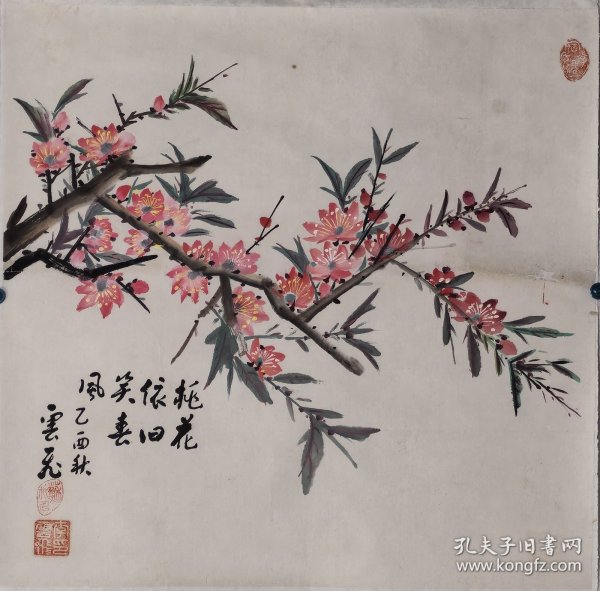 桃花
依旧
笑春
風乙酉秋
雲飛
孔夫子旧书网
www.kongfz.com